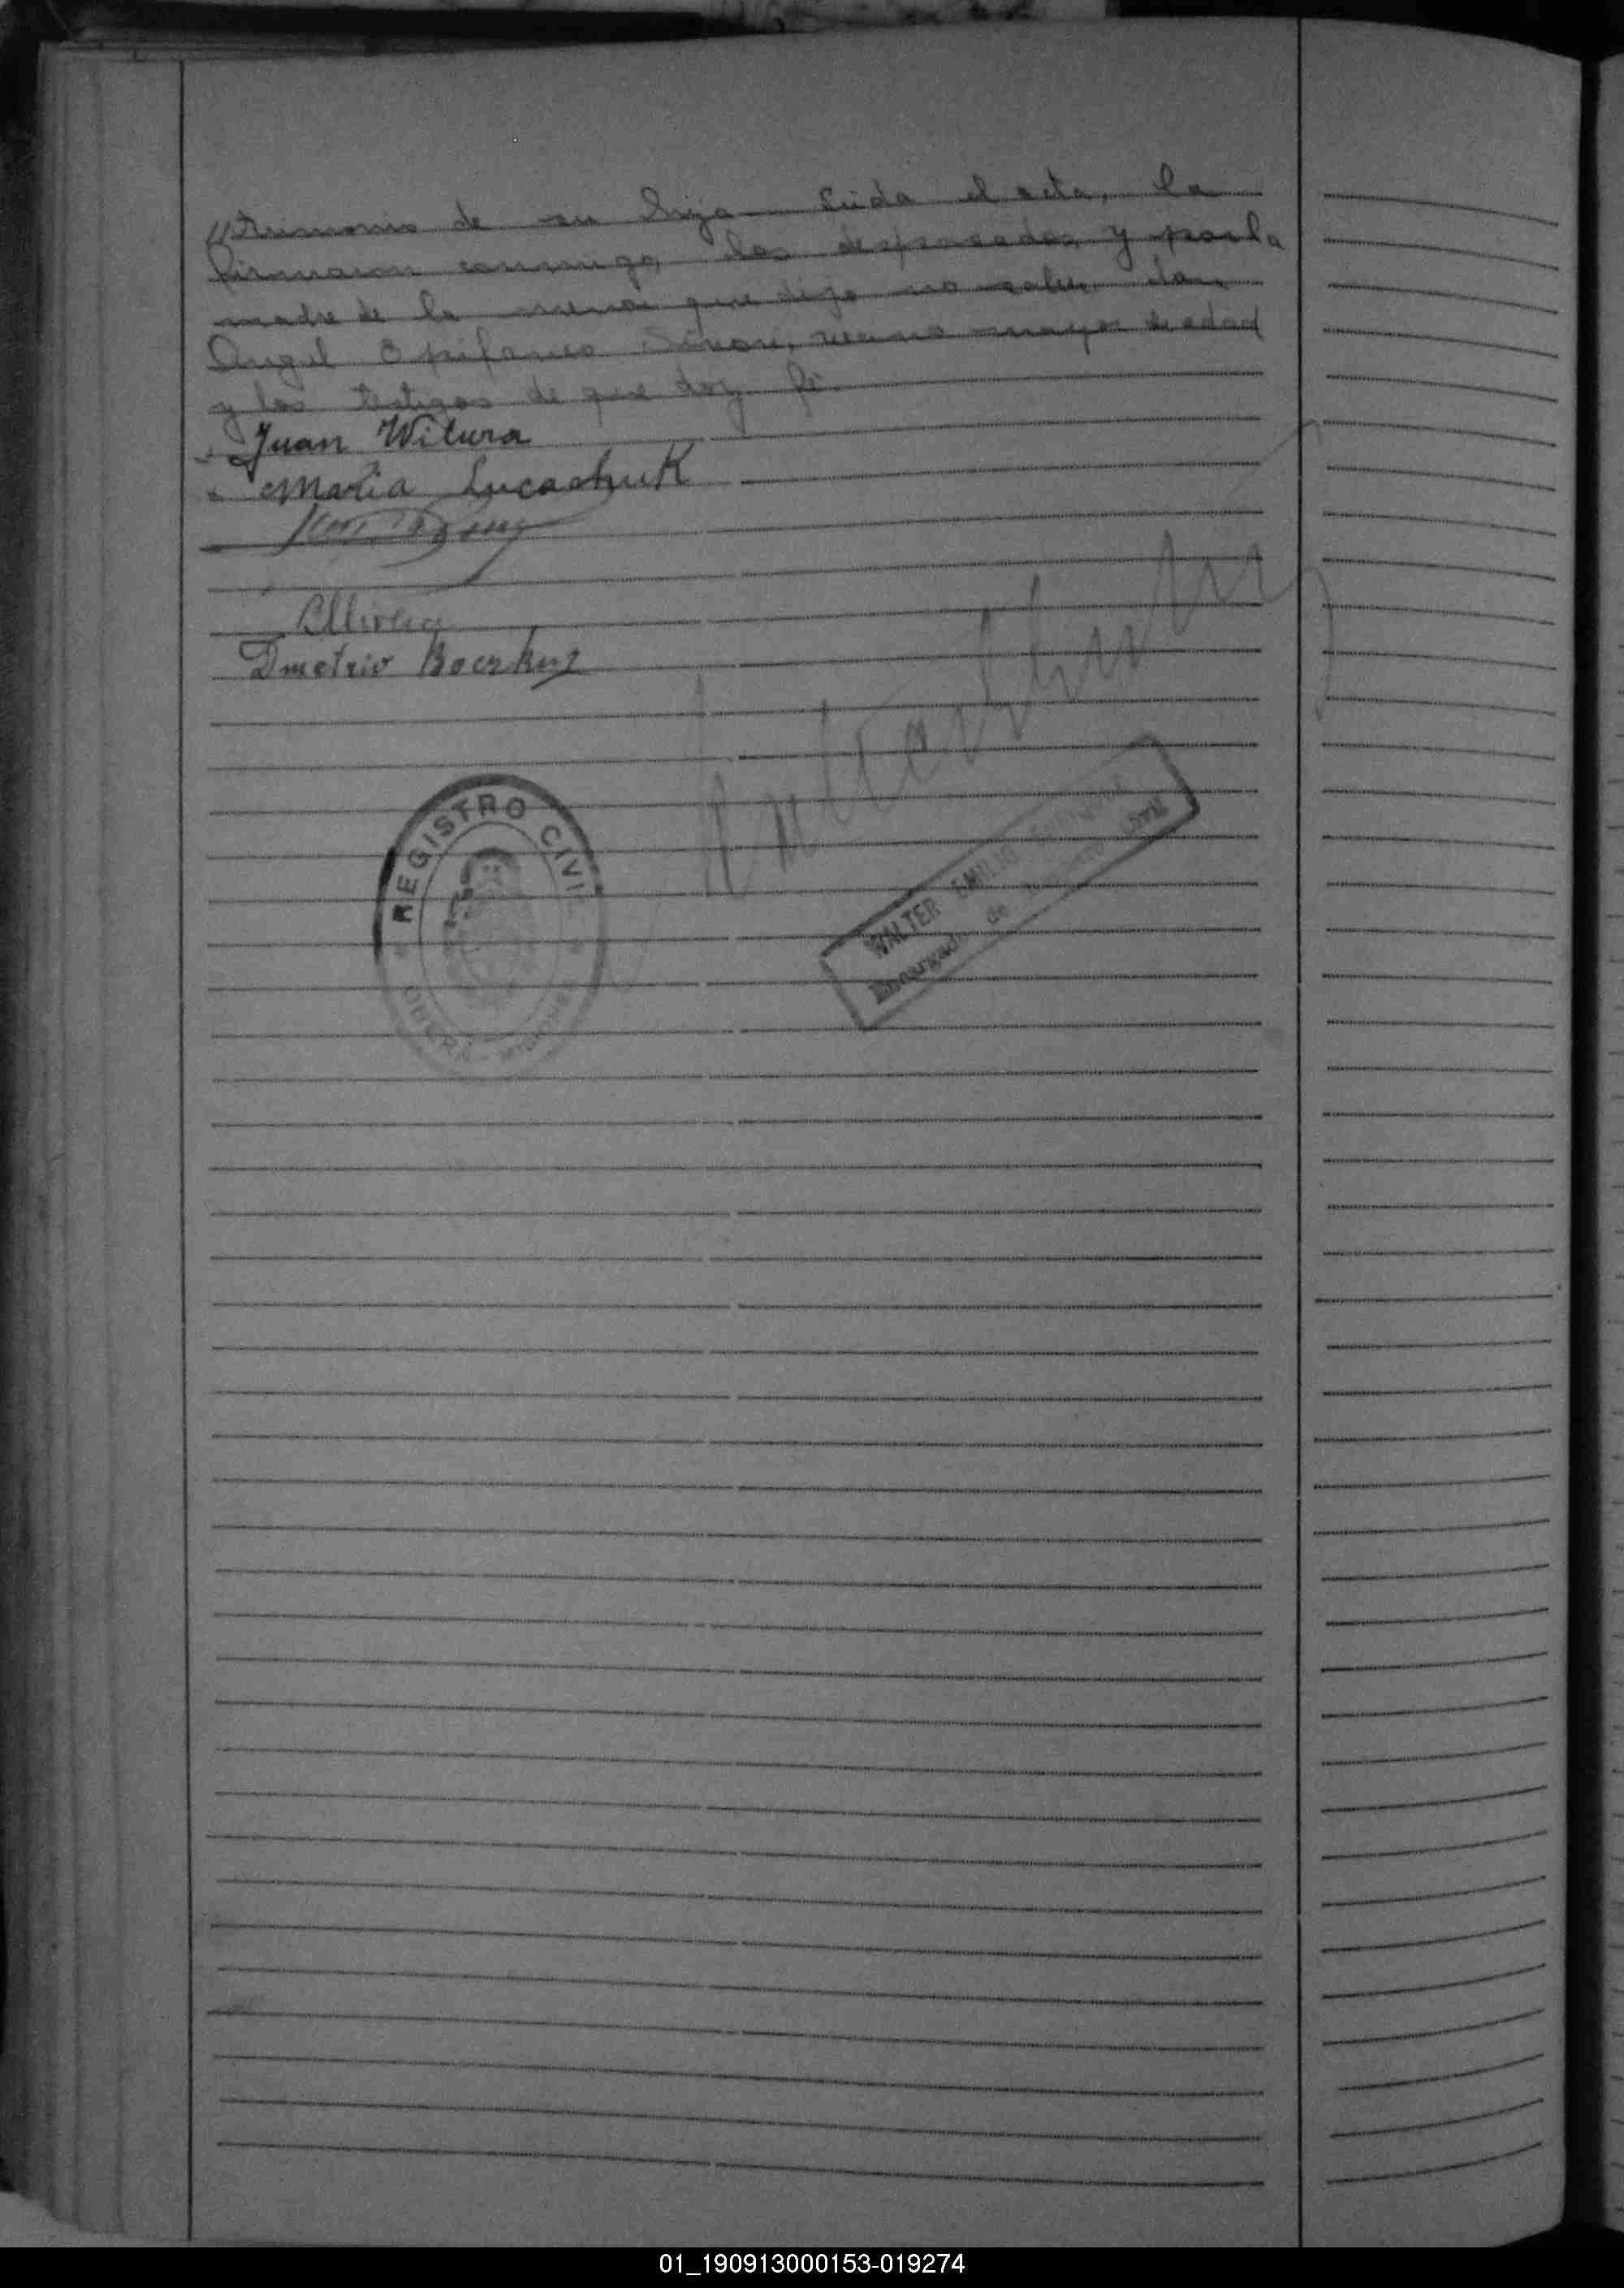 //trimonio de su hija — Leida el acta, la
firmaron conmigo, los desposados y por la
madre de la menor que dijo no saber, don
Angel Epifanio vecino mayor de edad
y los testigos de que doy fé.
Juan Witura
Maria Lucachuk
Dmetrio Boczkuz
REGISTRO CIVIL
OBERA - MISIONES
WALTER EMILIO
Encargado de Registro Civil
01_190913000153-019274